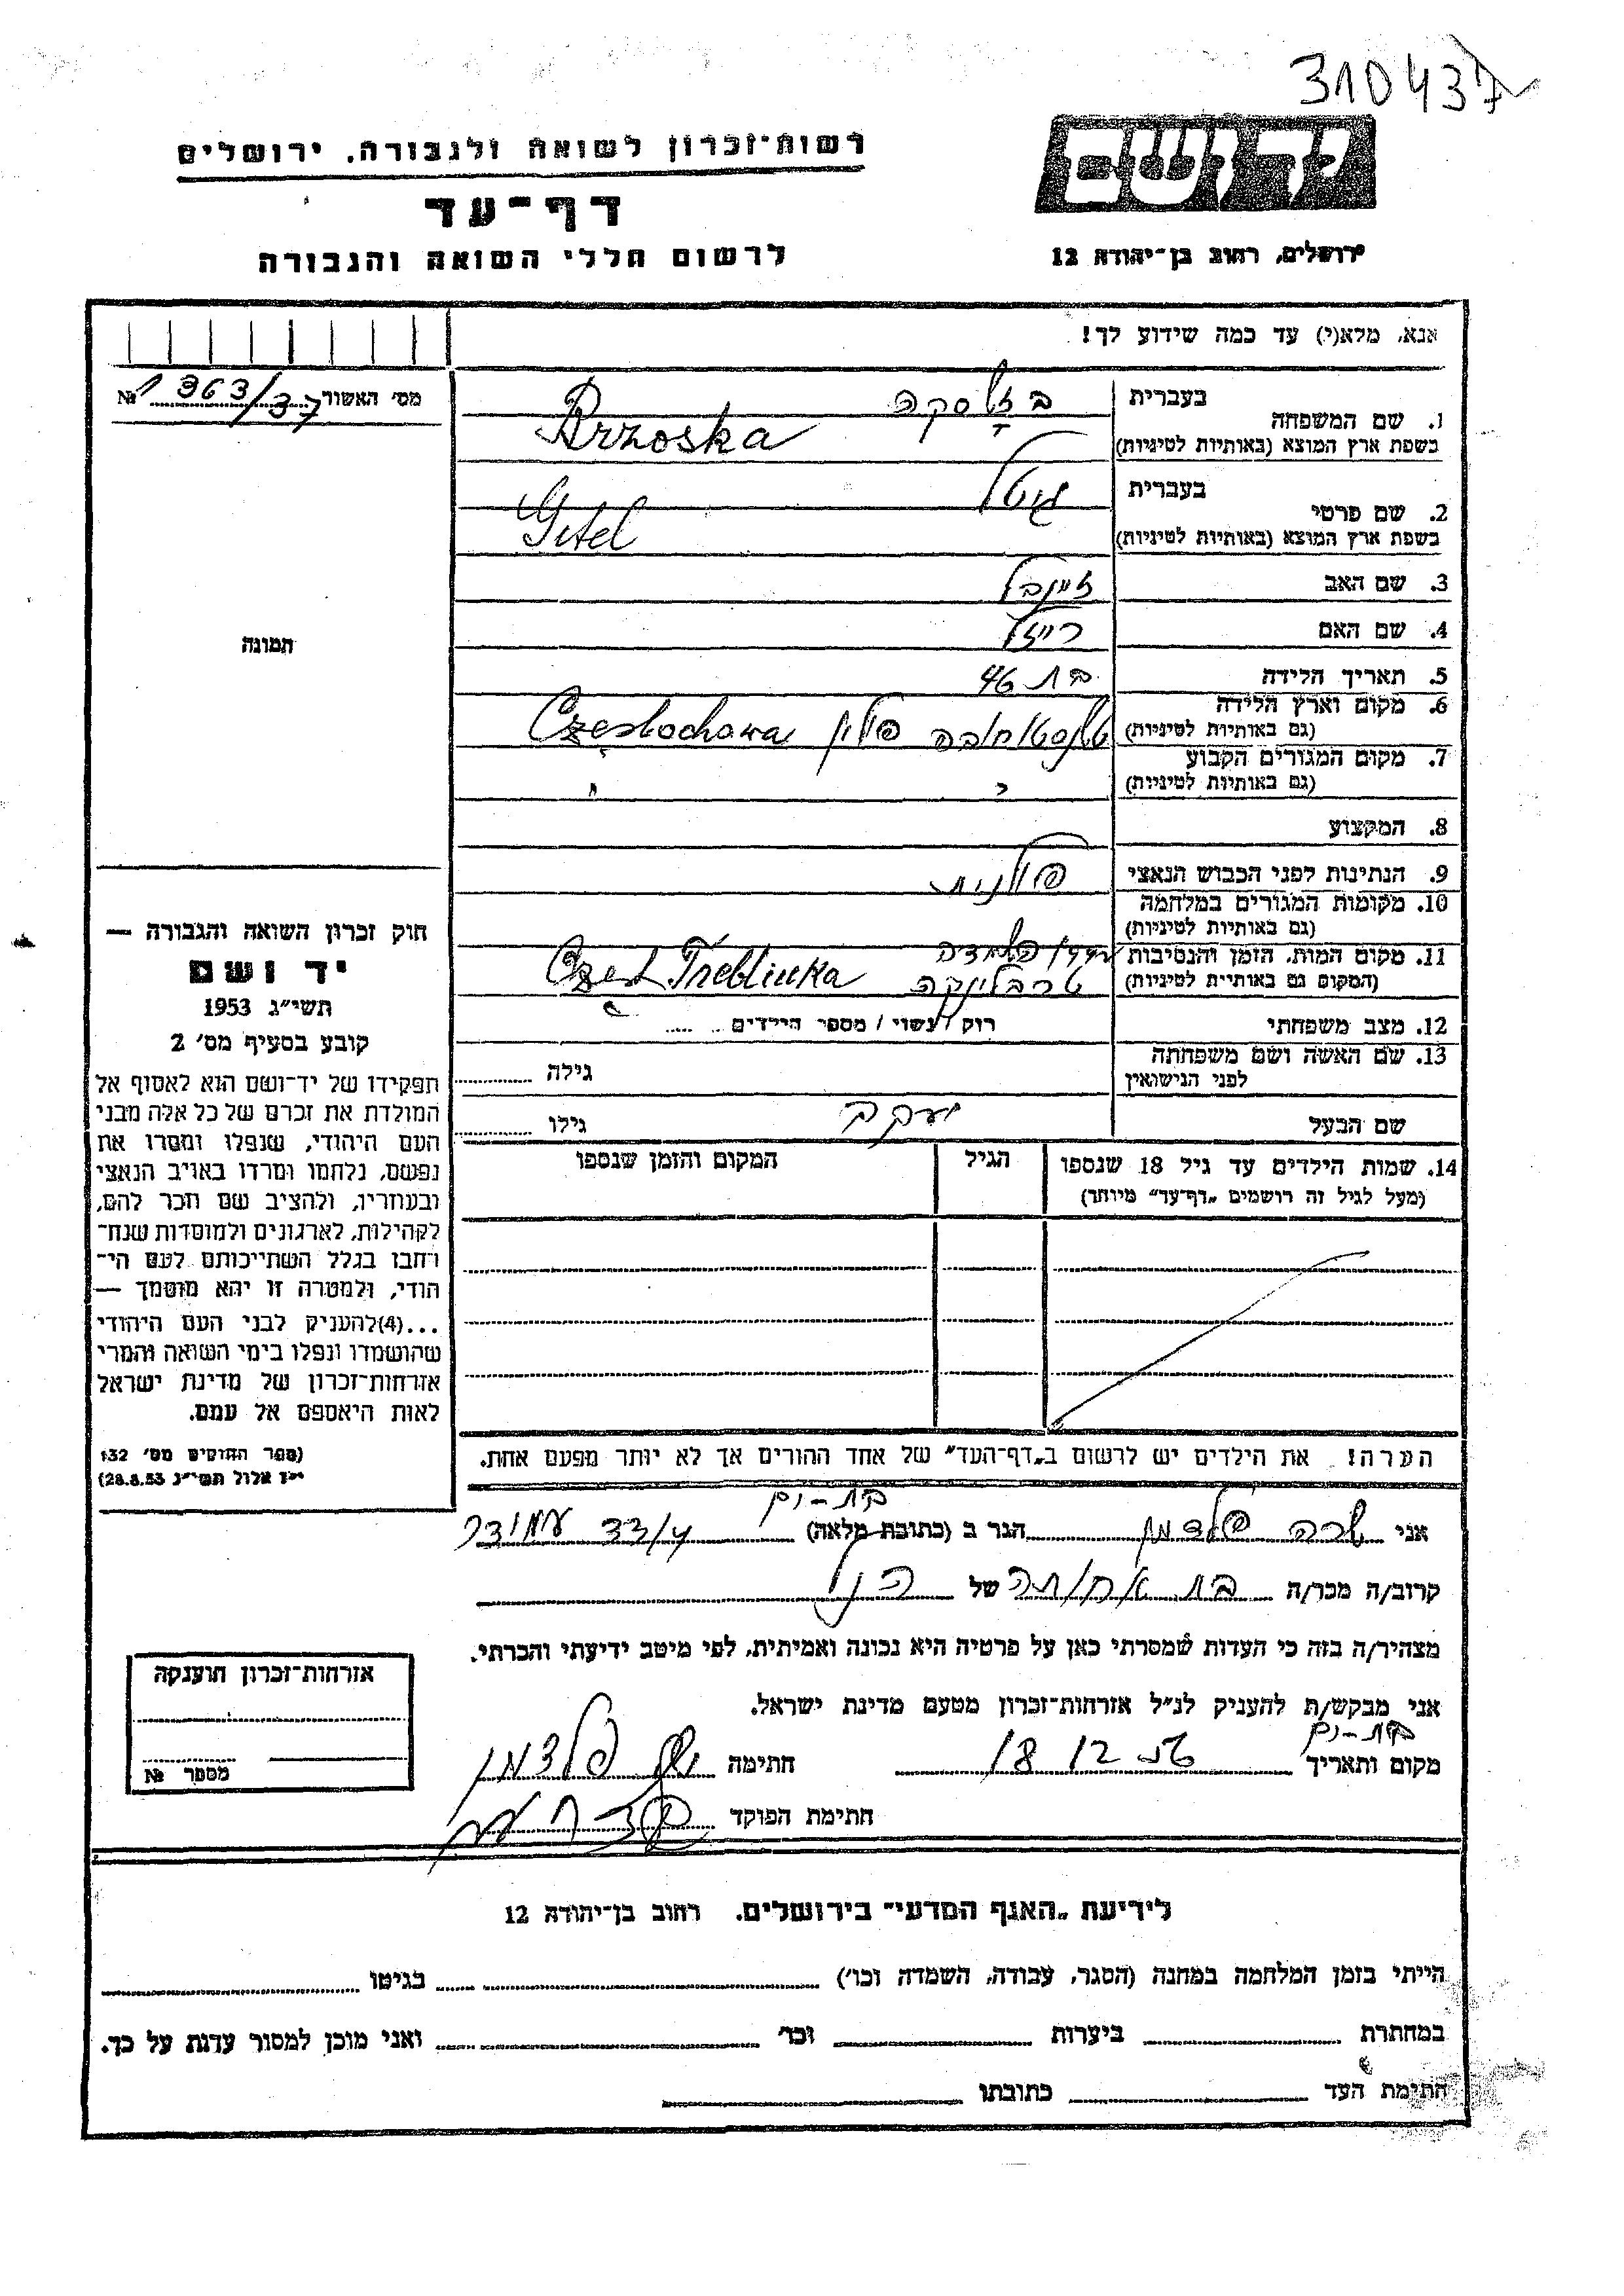 310437
רשות־זכרון לשואה ולגבורה, ירושלים
יד ושם
דף־עד
לרשום חללי השואה והגבורה
ירושלים, רחוב בן־יהודה 12
אנא, מלא(י) עד כמה שידוע לך!
מס' האשור № 1363/37
1. שם המשפחה
בעברית
Brzoska
בשפת ארץ המוצא (באותיות לטיניות)
2. שם פרטי
בעברית גיטל
בשפת ארץ המוצא (באותיות לטיניות) Gitel
3. שם האב
4. שם האם רייזל
5. תאריך הלידה בת 46
6. מקום וארץ הלידה
(גם באותיות לטיניות) פולין Częstochowa
7. מקום המגורים הקבוע
(גם באותיות לטיניות) " "
8. המקצוע
9. הנתינות לפני הכבוש הנאצי פולנית
10. מקומות המגורים במלחמה
(גם באותיות לטיניות)
11. מקום המות, הזמן והנסיבות
(המקום גם באותיות לטיניות) טרבלינקה Częst Treblinka
12. מצב משפחתי רווק / נשוי / מספר הילדים
13. שם האשה ושם משפחתה
לפני הנישואין גילה
שם הבעל יעקב גילו
14. שמות הילדים עד גיל 18 שנספו הגיל המקום והזמן שנספו
(מעל לגיל זה רושמים „דף־עד" מיוחד)
הערה! את הילדים יש לרשום ב„דף־העד" של אחד ההורים אך לא יותר מפעם אחת.
תמונה
חוק זכרון השואה והגבורה —
יד ושם
תשי"ג 1953
קובע בסעיף מס' 2
תפקידו של יד־ושם הוא לאסוף אל
המולדת את זכרם של כל אלה מבני
העם היהודי, שנפלו ומסרו את
נפשם, נלחמו ומרדו באויב הנאצי
ובעוזריו, ולהציב שם וזכר להם,
לקהילות, לארגונים ולמוסדות שנח־
רבו בגלל השתייכותם לעם הי־
הודי, ולמטרה זו יהא מוסמך —
...(4)להעניק לבני העם היהודי
שהושמדו ונפלו בימי השואה והמרי
אזרחות־זכרון של מדינת ישראל
לאות היאספם אל עמם.
(ספר החוקים מס' 132
י"ז אלול תשי"ג 28.8.53)
בת-ים
אני שרה פלדמן הגר ב (כתובת מלאה) 33/4
קרוב/ה מכר/ה בת אחותה של
מצהיר/ה בזה כי העדות שמסרתי כאן על פרטיה היא נכונה ואמיתית, לפי מיטב ידיעתי והכרתי.
אני מבקש/ת להעניק לנ"ל אזרחות־זכרון מטעם מדינת ישראל.
בת-ים
מקום ותאריך 18 12 חתימה פלדמן
חתימת הפוקד
אזרחות־זכרון הוענקה
מספר №
לידיעת „האגף המדעי" בירושלים. רחוב בן־יהודה 12
הייתי בזמן המלחמה במחנה (הסגר, עבודה, השמדה וכו') בגיטו
במחתרת ביערות וכו' ואני מוכן למסור עדות על כך.
חתימת העד כתובתו